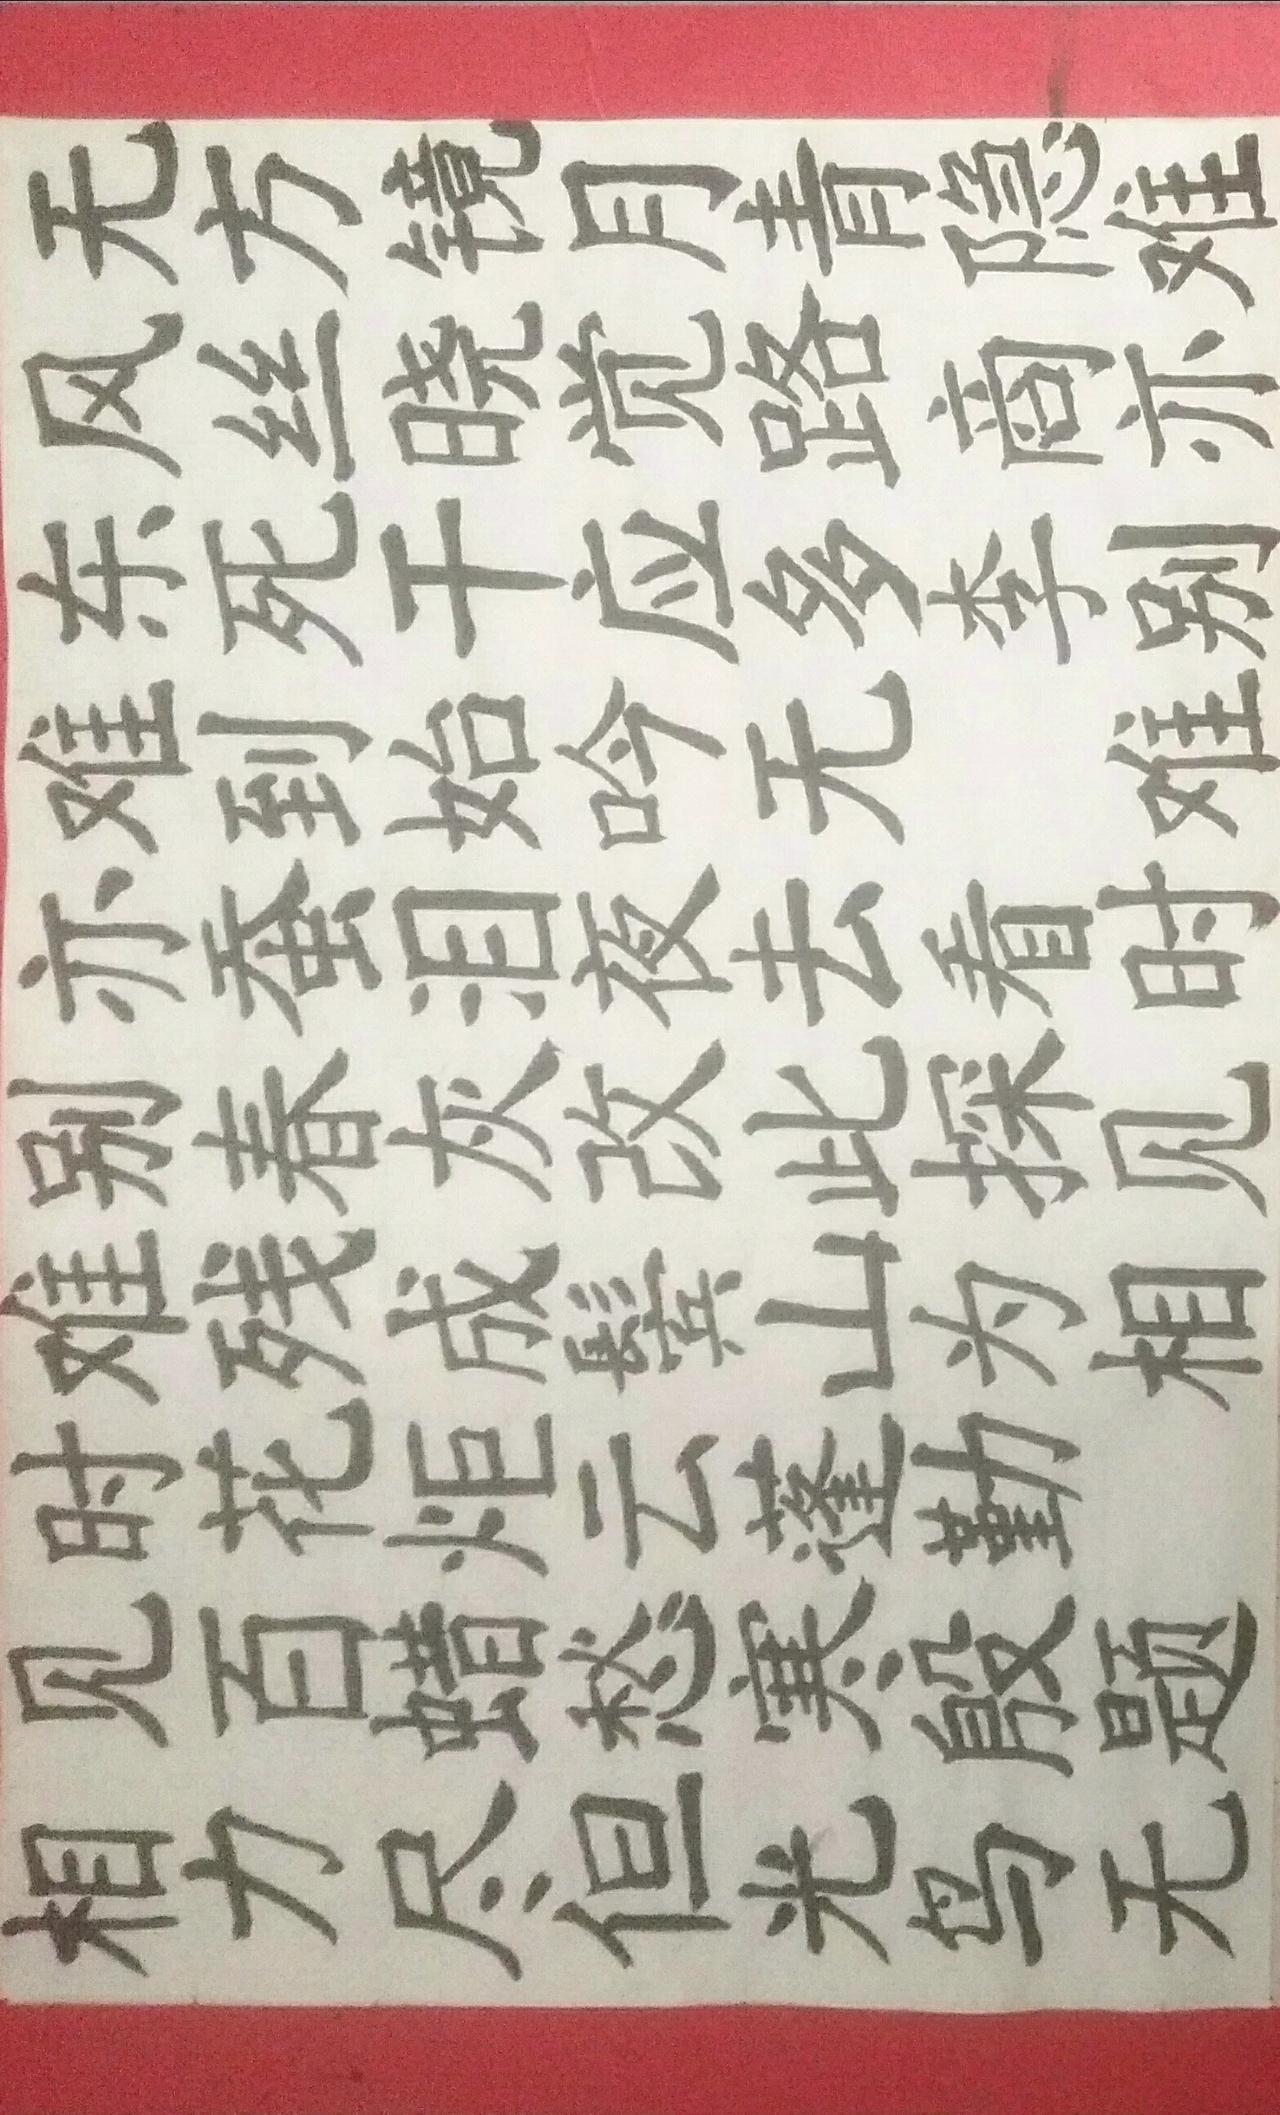 相见时难别亦难东风无
力百花残春蚕到死丝方
尽蜡炬成灰泪始干晓镜
但愁云鬓改夜吟应觉月
光寒蓬山此去无多路青
鸟殷勤为探看 李商隐
无题 相见时难别亦难